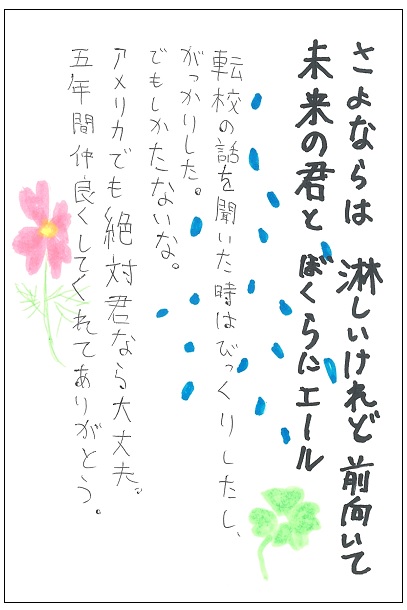 さよならは 淋しいけれど 前向いて
未来の君と ぼくらにエール
転校の話を聞いた時はびっくりしたし、
がっかりした。
でもしかたないな。
アメリカでも絶対君なら大丈夫。
五年間仲良くしてくれてありがとう。